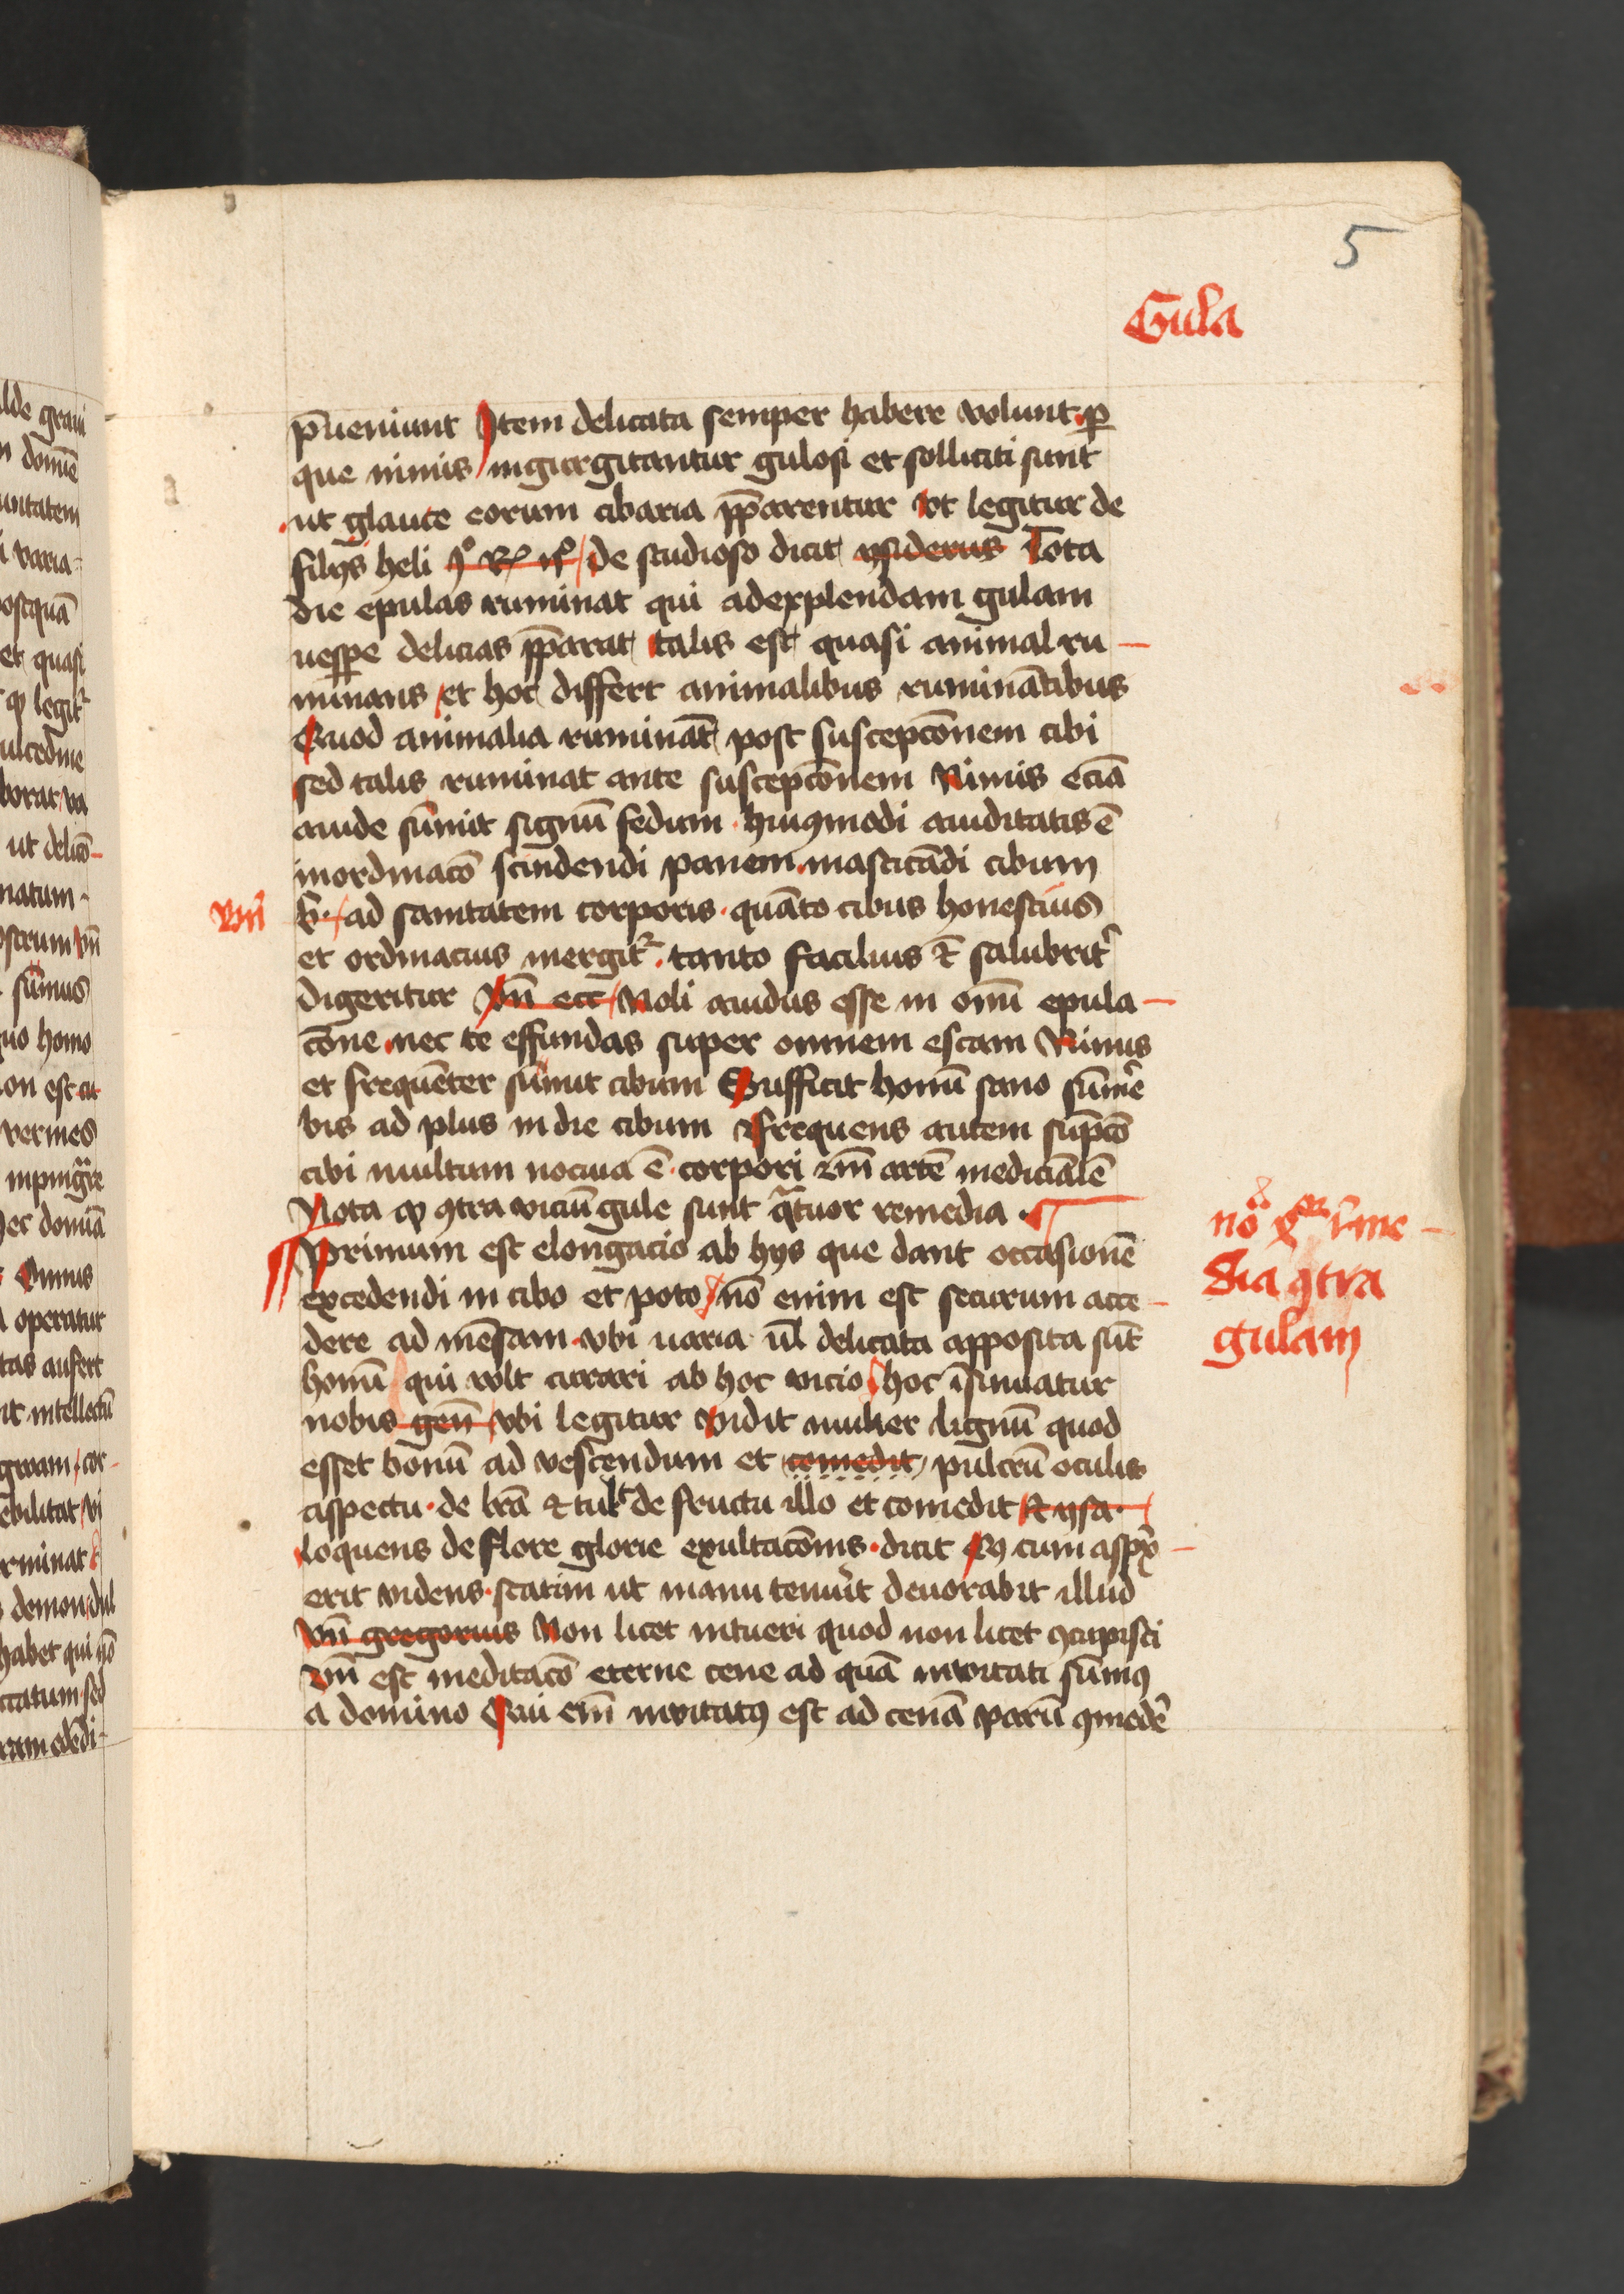 5
Gula
p̄ueniunt Item delicata semper habere volunt. ꝑ
que nimis ingurgitantur gulosi et solliciti sunt
ut glaute eorum cibaria p̄parentur vt legitur de
filijs heli de studioso dicit ysiderus Tota
die epulas ruminat qui adexplendam gulam
uesꝑe delicias p̄parat talis est quasi animal ru-
minans et hoc differt animalibus ruminātibus
Quod animalia rumināt post suscepcōnem cibi
sed talis ruminat ante suscepcōnem Nimis eciā
auide sūmit signū fedum. huiꝯmodi auiditatis ē
inordinacō scindendi panem. masticādi cibum
ad sanitatem corporis. quāto cibus honestius
et ordinacius mergit᷑. tanto facilius et̄ salubrit᷑
digeritur vn̄ ecc Noli auidus esse in om̄i epula-
cōne nec te effundas super omnem escam Nimis
et frequēter sūmit cibum Sufficit homī sano sūme᷑
bis ad plus in die cibum Frequens autem sūpcō
cibi multum nociua ē. corpori scd̄m artē medicinalē
Nota ꝙ ꝯtra viciū gule sunt qͣtuor remedia.
Primum est elongacio ab hijs que dant occasionē
excedendi in cibo et poto nō enim est securum acce-
dere ad mēsam. vbi uaria ul̄ delicata apposita sūt
homī qui volt curari ab hoc vicio hoc īsinuatur
nobis gen̄ vbi legitur vidit mulier lignū quod
esset bonū ad vescendum et comedit pulcrū oculis
aspectu. de... et tulit de fructu illo et comedit Et ysa.
loquens de flore glorie exultacōnis. dicit Qͥ cum aspex-
erit videns. statim ut manu tenuīt deuorabit illud
vn̄ gregorius Non licet intueri quod non licet ꝯcupisci
est meditacō eterne cene ad quā inuitati sumꝯ
a domino Qui em̄ inuitatꝯ est ad cenā parū ꝯmede᷑
nō rme-
dia ꝯtra
gulam